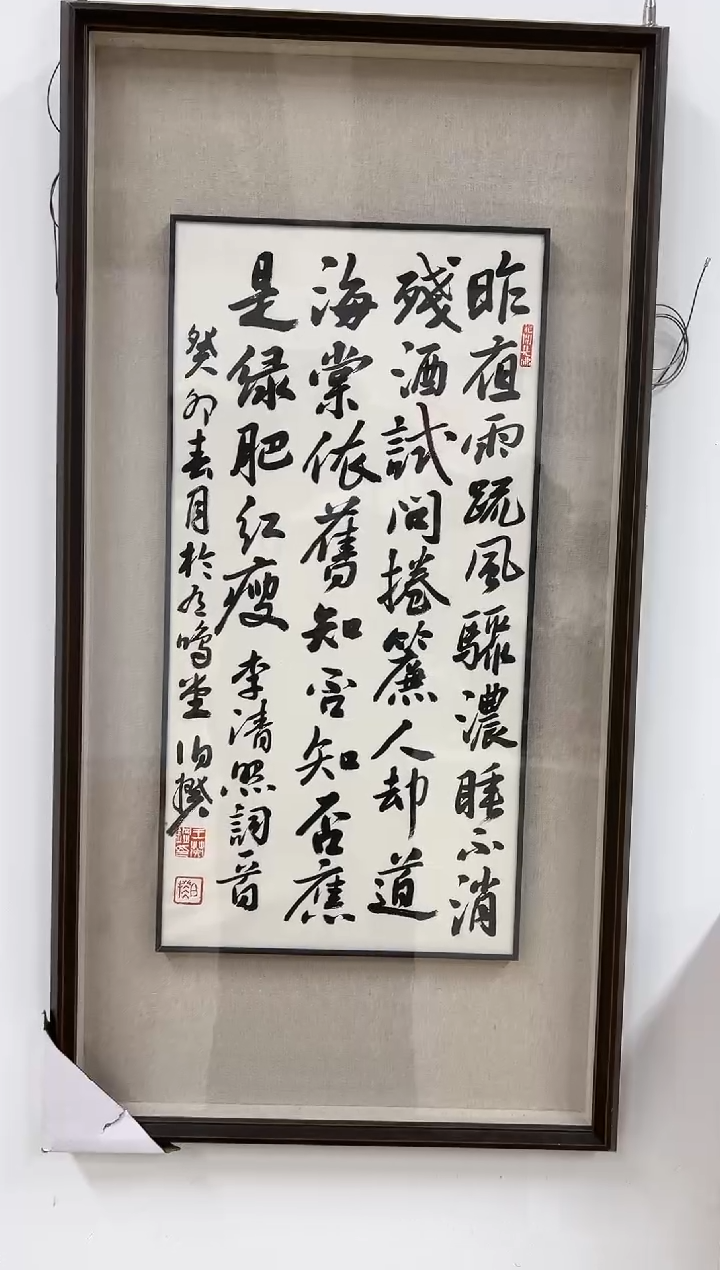 昨夜雨疏風驟濃睡不消
殘酒試問捲簾人却道
海棠依舊知否知否應
是緑肥紅瘦 李清照詞一首
癸卯春月於鳴堂 伯揆